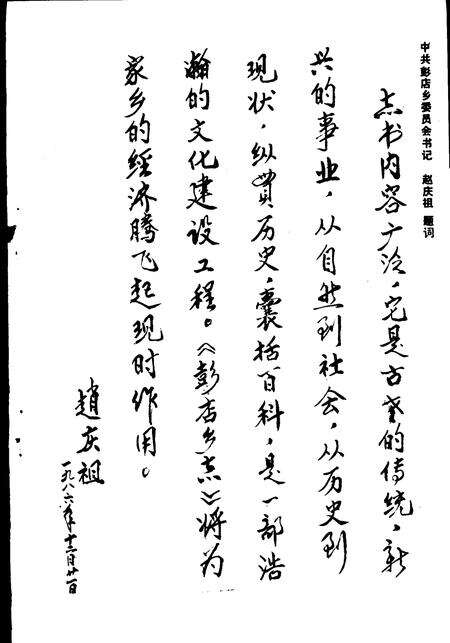 中共彭店乡委员会书记 赵庆祖 题词
志书内容广泛，它是古老的传统，新
兴的事业，从自然到社会，从历史到
现状，纵贯历史，囊括百科，是一部浩
瀚的文化建设工程。《彭店乡志》将为
家乡的经济腾飞起现时作用。
趙庆祖
一九八六年十二月廿一日